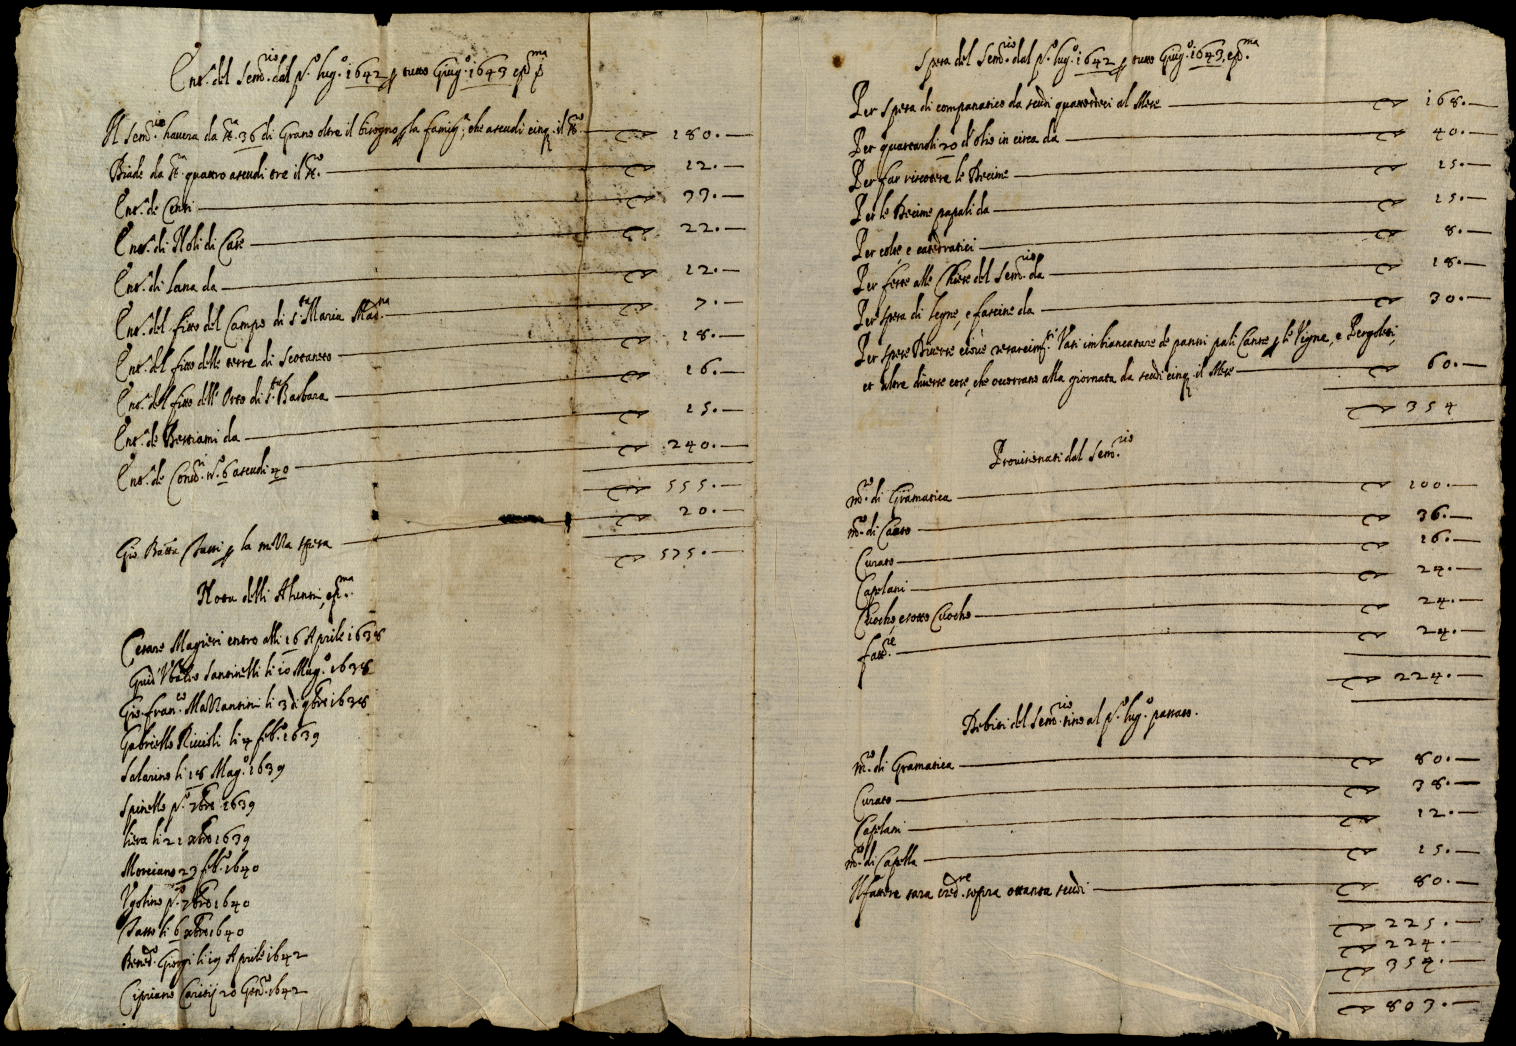 Entr.a del Sem.rio dal p.o lug.o 1642 p tutto Giug.o 1643 et p.ma
Il Sem.rio havera da st.a 36 di Grano oltre il bisogno p la famig.a, che a scudi cinq. il st.o — 180. —
Biade da st.a quattro a scudi tre il st.o — 12. —
Entr.a de Censi — 33. —
Entr.a di Noli di Case — 22. —
Entr.a di Lana da — 12. —
Entr.a del fitto del Campo di s.ta Maria Mad.na — 7. —
Entr.a del fitto delle terre di Scotaneto — 18. —
Entr.a del fitto dell' Orto di s.ta Barbara — 16. —
Entr.a de Bestiami da — 15. —
Entr.a de Conv.ri n.o 6 a scudi 40 — 240. —
555. —
Gio Batta Tassi p la mezza spesa — 20. —
575. —
Nota delli Alunni, et p.ma
Cesare Magrieri entro alli 16 Aprile 1638
Guid' Ubaldo Santinelli li 10 Mag.o 1638
Gio. Fran.co Mazzantini li 3 di 9bre 1638
Gabriello Riccioli li 4 feb.o 1639
Salarino li 18 Mag.o 1639
Spinello p.o 7bre 1639
Liera li 21 xbre 1639
Morciano 23 feb.o 1640
Ugolino p.o 7bre 1640
Tasso li 6 xbre 1640
Bened.o Giorgi li 19 Aprile 1642
Cipriano Carisij 20 Gen.o 1642
Spesa del Sem.rio dal p.o lug.o 1642 p tutto Giug.o 1643, et p.ma
Per spesa di companatico da scudi quattordeci al Mese — 168. —
Per quartaroli 20 d'olio in circa da — 40. —
Per far riscotere le Decime — 15. —
Per le Decime papali da — 15. —
Per colte, e catedratici — 8. —
Per feste alle Chiese del Sem.rio da — 18. —
Per spesa di legne, e fascine da — 30. —
Per spese Diverse cioè resarcim.ti Vasi imbiancature de panni pali Canne p le Vigne, e Pergoleti,
et altre diverse cose, che ocorrano alla giornata da scudi cinq. il Mese — 60. —
354
Provisionati dal Sem.rio
M.ro di Gramatica — 100. —
M.ro di Canto — 36. —
Curato — 16. —
Capelani — 24. —
Cuocho, e sotto Cuocho — 24. —
Fatt.re — 24. —
224. —
Debiti del Sem.rio sino al p.o lug.o passato.
M.ro di Gramatica — 80. —
Curato — 38. —
Capelani — 12. —
M.ro di Capella — 15. —
Il fattore sara cred.re sopra ottanta scudi — 80. —
225. —
224. —
354. —
803. —